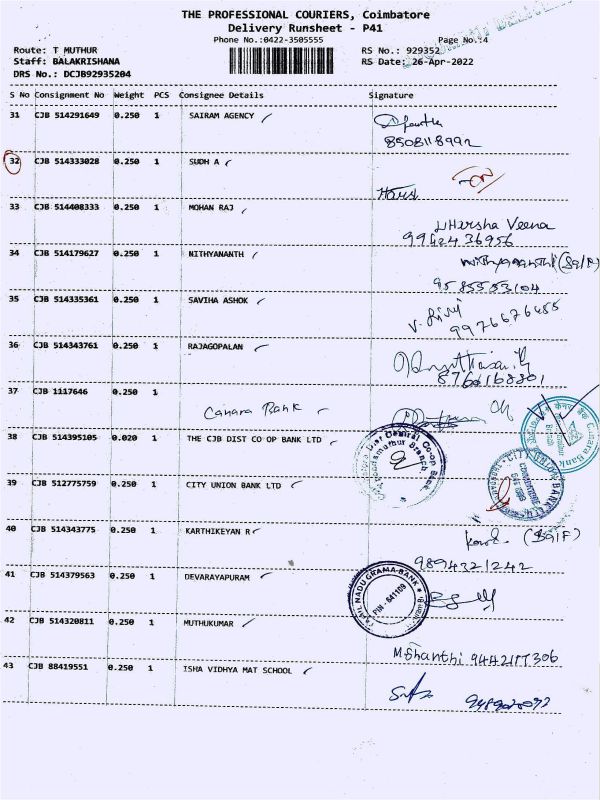 THE PROFESSIONAL COURIERS, Coimbatore
Delivery Runsheet - P41
Phone No.:0422-3505555
Page No.:4
Route: T MUTHUR
RS No.: 929352
Staff: BALAKRISHANA
RS Date: 26-Apr-2022
DRS No.: DCJB92935204
S No Consignment No Weight PCS Consignee Details Signature
31 CJB 514291649 0.250 1 SAIRAM AGENCY
8508118992
32 CJB 514333028 0.250 1 SUDH A
33 CJB 514408333 0.250 1 MOHAN RAJ
Harsha Veena
9942436956
34 CJB 514179627 0.250 1 NITHYANANTH
9585553104
35 CJB 514335361 0.250 1 SAVIHA ASHOK
9976676455
36 CJB 514343761 0.250 1 RAJAGOPALAN
37 CJB 1117646 0.250 1 Canara Bank
38 CJB 514395105 0.020 1 THE CJB DIST CO OP BANK LTD
39 CJB 512775759 0.250 1 CITY UNION BANK LTD
40 CJB 514343775 0.250 1 KARTHIKEYAN R
9894321242
41 CJB 514379563 0.250 1 DEVARAYAPURAM
TAMIL NADU GRAMA BANK
PIN - 641109
42 CJB 514320811 0.250 1 MUTHUKUMAR
M Shanthi 9442177306
43 CJB 88419551 0.250 1 ISHA VIDHYA MAT SCHOOL